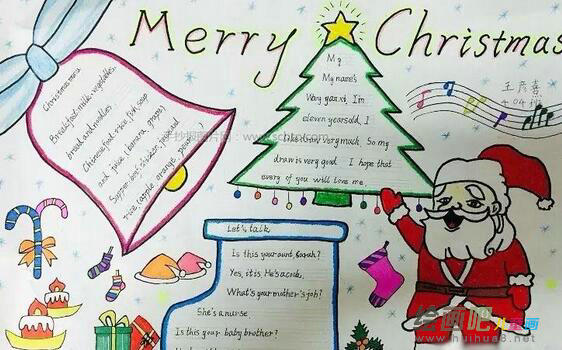 Merry Christmas
Christmas menu
Breakfast: milk, vegetables,
bread and noodles.
Chinese food: rice, fish soup
and juice (banana, grapes)
Supper: beef, chicken,
rice (apple, orange,
My
My name's
Wang yan xi, I'm
eleven years old, I
like draw very much. So my
draw is very good I hope that
every of you will love me.
王彦喜
404班
Let's talk
Is this your aunt, Sarah?
Yes, it is. He's a cook,
What's your mother's job?
She's a nurse
Is this your baby brother?
绘画吧
儿童画
www.huihua8.net